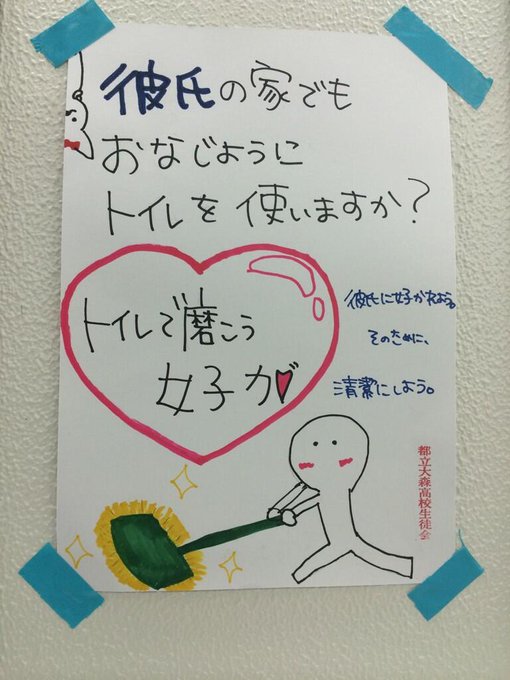 彼氏の家でも
おなじように
トイレを使いますか?
トイレで磨こう
女子力
彼氏に好かれよう。
そのために、
清潔にしよう。
都立大森高校生徒会